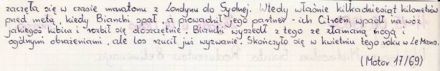 zaczęła się w czasie maratonu z Londynu do Sydney. Wtedy właśnie kilkadziesiąt kilometrów
przed metą, kiedy Bianchi spał, a prowadził jego partner - ich Citroën wpadł na wóz
jakiegoś kibica i rozbił się doszczętnie. Bianchi wyszedł z tego ze złamaną nogą i
ogólnymi obrażeniami, ale los rzucił już wyzwanie. Skończyło się w kwietniu tego roku w Le Mans.
(Motor 17/69)